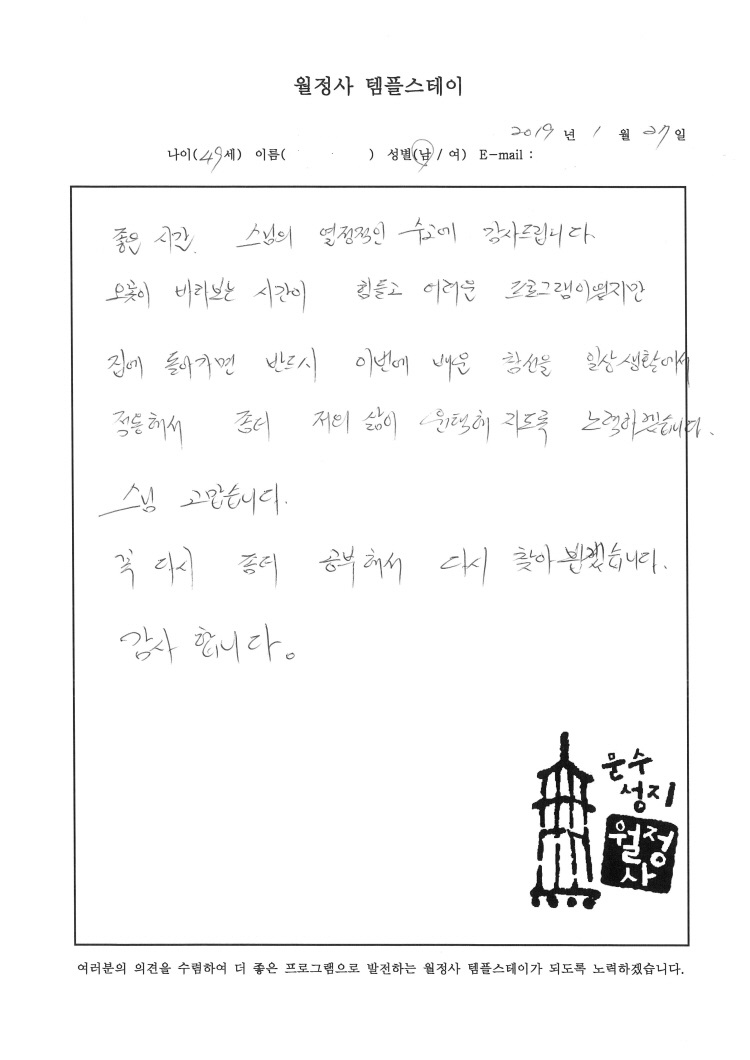 월정사 템플스테이
2019 년 1 월 27 일
나이(49세) 이름( ) 성별(남 / 여) E-mail :
좋은 시간. 스님의 열정적인 수고에 감사드립니다.
오롯이 바라보는 시간이 힘들고 어려운 프로그램이였지만
집에 돌아가면 반드시 이번에 배운 참선을 일상생활에서
적용해서 좀더 저의 삶이 윤택해 지도록 노력하겠습니다.
스님 고맙습니다.
꼭 다시 좀더 공부해서 다시 찾아 뵙겠습니다.
감사 합니다。
문수
성지
월정
사
여러분의 의견을 수렴하여 더 좋은 프로그램으로 발전하는 월정사 템플스테이가 되도록 노력하겠습니다.